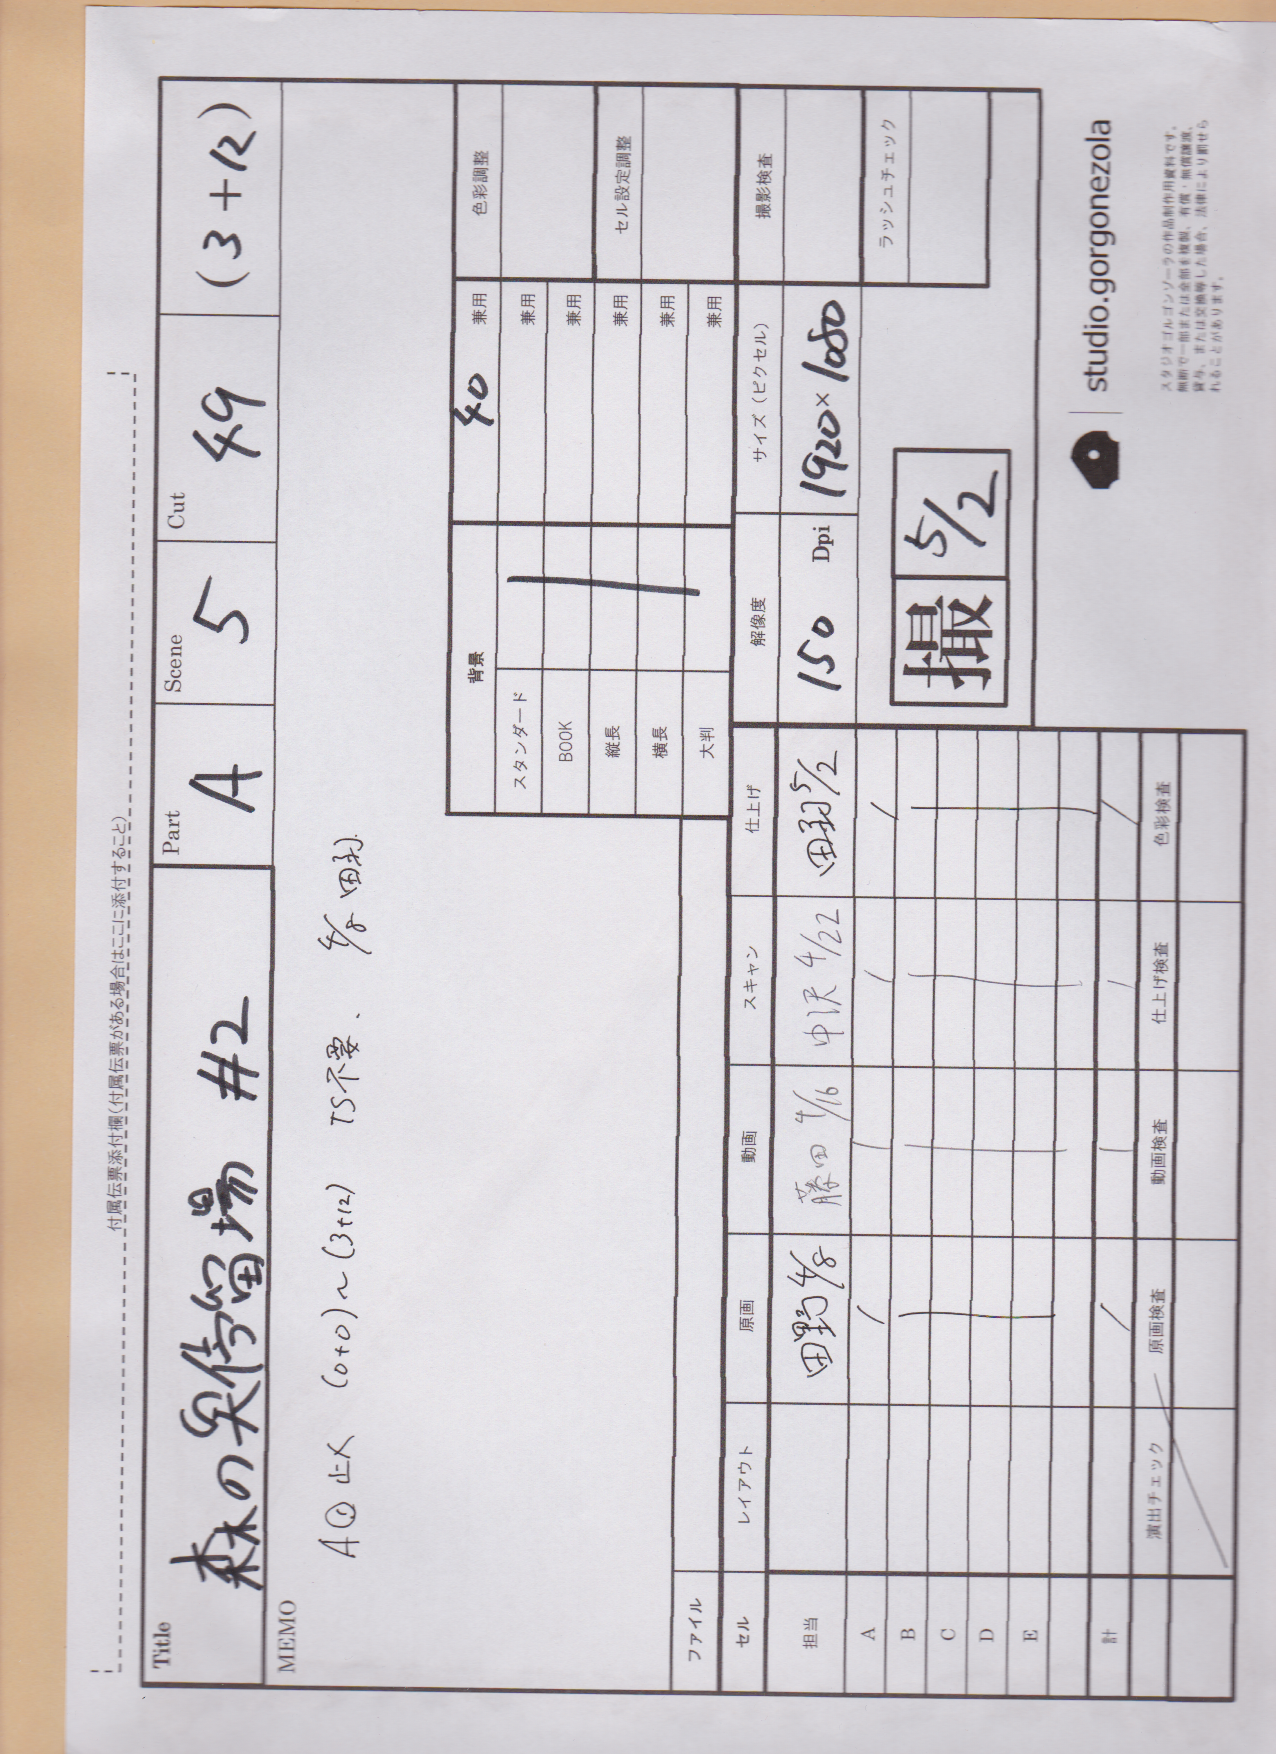 付属伝票添付欄(付属伝票がある場合はここに添付すること)
Title 森の停留場 #2
Part A
Scene 5
Cut 49
(3+12)
MEMO
A① 止メ (0+0)〜(3+12) TS不要、 4/8 田
背景 40 兼用
スタンダード 兼用
BOOK 兼用
縦長 兼用
横長 兼用
大判 兼用
色彩調整
セル設定調整
撮影検査
ラッシュチェック
ファイル
セル レイアウト 原画 動画 スキャン 仕上げ
担当 田野 4/8 藤田 4/16 中沢 4/22 田 5/2
A
B
C
D
E
計
演出チェック 原画検査 動画検査 仕上げ検査 色彩検査
解像度 サイズ(ピクセル)
150 Dpi 1920×1080
撮 5/2
studio.gorgonezola
スタジオゴルゴンゾーラの作品制作用資料です。
無断で一部または全部を複製、有償・無償譲渡、
貸与、または交換等した場合、法律により罰せら
れることがあります。